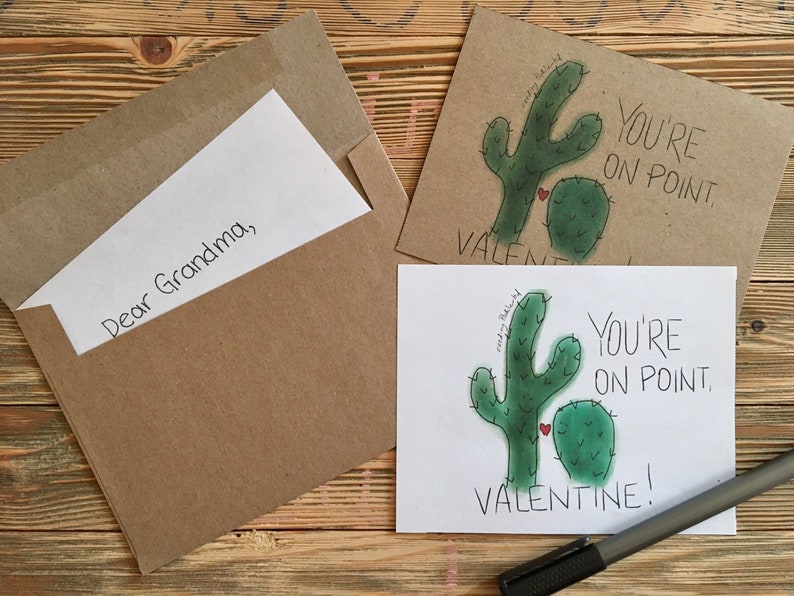 Dear Grandma,
YOU'RE
ON POINT,
VALENTINE!
YOU'RE
ON POINT,
VALENTINE!